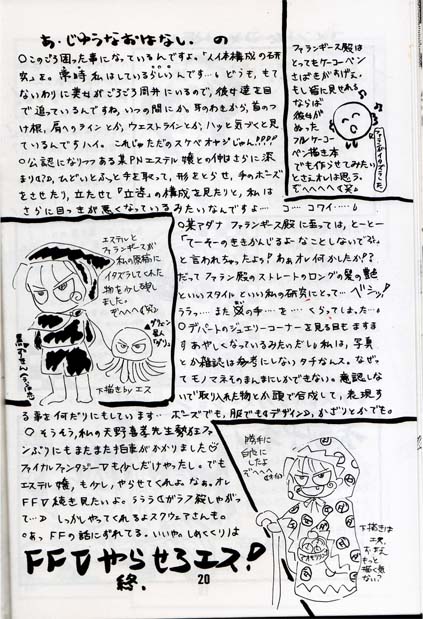 あ・じゅうなおはない。の
○このごろ困った事になっているんですよ。“人体構成の研
究”を。常時私はしているらしいんです…。どうも、もて
ないわりに美女がごろごろ周りにいるので、彼女達を目
で追っているんですね、いつの間にか。耳のわきから、首のつ
け根、肩へのラインとか、ウエストラインとか、ハッと気づくと見
ているんですハイ。これじゃただのスケベオヤジじゃん!!!!
○公認になりつつある某PNエステル嬢との仲はさらに深
まり、ひどいとふっと手を取って、形をとらせ、手のポーズ
をさせたり、立たせて「立姿」の構成を見たりと、私は
さらに目つきが悪くなっているみたいなんですよ… コ…コワイ…
ファランギース殿は
とってもケーコーペン
さばきがあざえ。
もし猫に見せれる
ならば
彼女が
ぬった
フルケーコー
ペン描き本
でも作らせてみたい
とさえ私は思う。
ぞへへへへ(笑)
エステルと
ファランギースが
私の原稿に
イタズラしてくれた
物をケシ残し
ました。
ぞへへへ(笑)
下描きby エス
○某アダナ ファランギース殿に至っては、とーとー
「てーそーのききかんじるよーなことしないで」
と言われちゃったよっ？わぁオレ何かしたか？？
だって ファラン殿のストレートのロングの髪の艶
といいスタイルといい私の研究にとって… ベシッ!
ううっ… また 双の手…を… くらってしまった…
○デパートのジュエリーコーナーを見る目もますま
すあやしくなっているみたいだし、私は、写真
とか雑誌は参考にしないタチなんス。なぜっ
てモノマネそのまんまにしかできない。意識しない
で取り入れた物とか頭で合成して、表現す
る事を何だりにもしています… ポーズでも、服でも、デザイン、かざりとかでも。
○そうそう、私の天野喜孝先生熱&ファ
ンぶりにもまたまた拍車がかかりました
ファイナルファンタジーⅤも少しだけやったし。でも
エステル嬢、も少し、やらせてくれよなぁ。オレ
FFⅤ続き見たいよ。
しっかしやってくれるよスクウェアさんも。
○あっFFの話にずれてる。いいや。しめくくりは
FFⅤやらせろエス!
終.
20
勝手に
白色に
したよ
ぞへへへ
下描きは
エス。